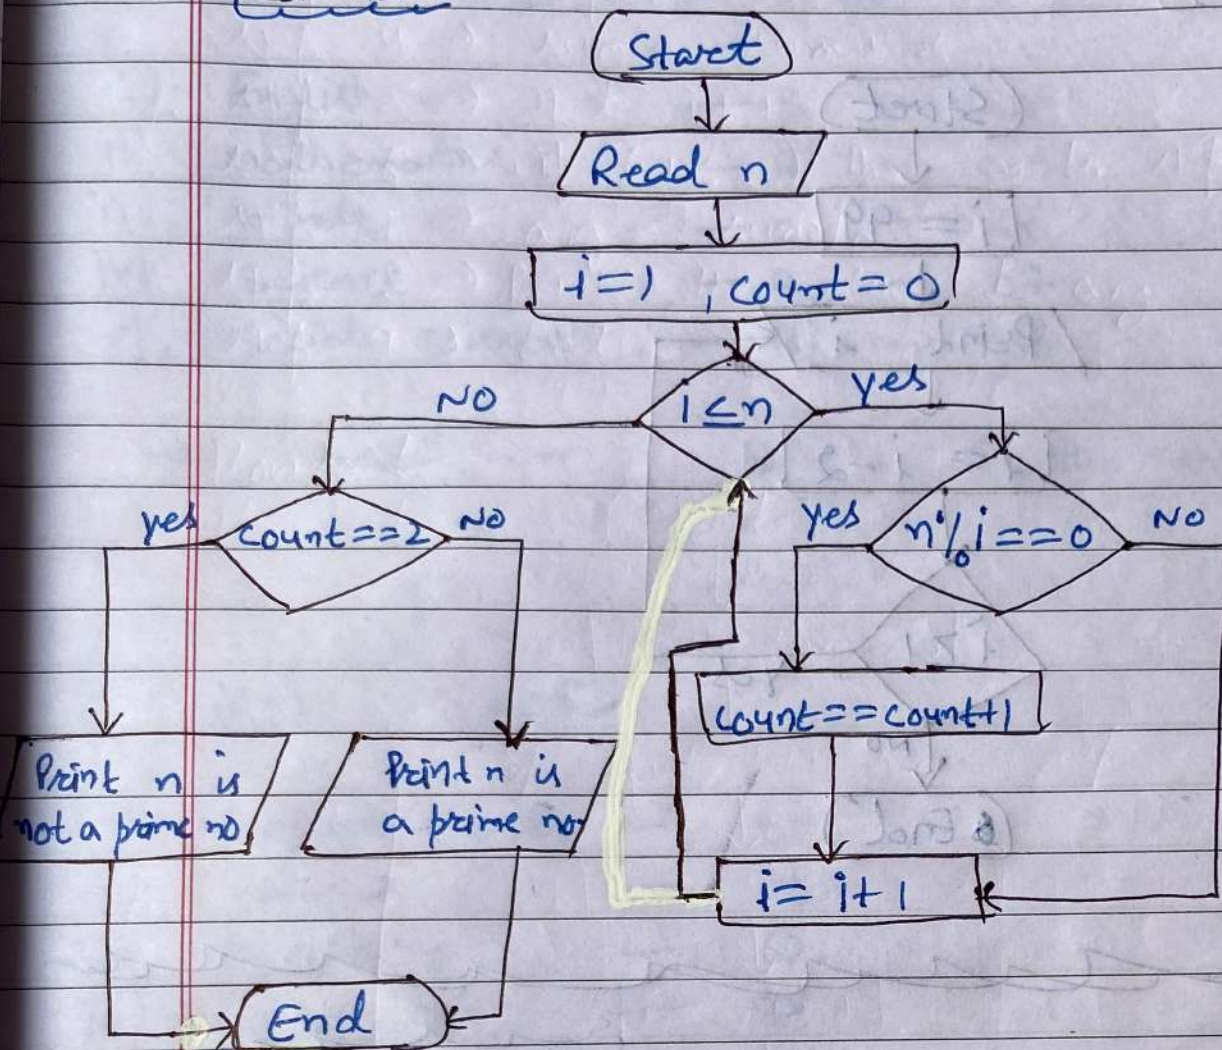 Start
Read n
i=1 , count=0
NO
i≤n
yes
yes
count==2
NO
yes
n%i==0
NO
count==count+1
Print n is
not a prime no
Print n is
a prime no
i= i+1
End